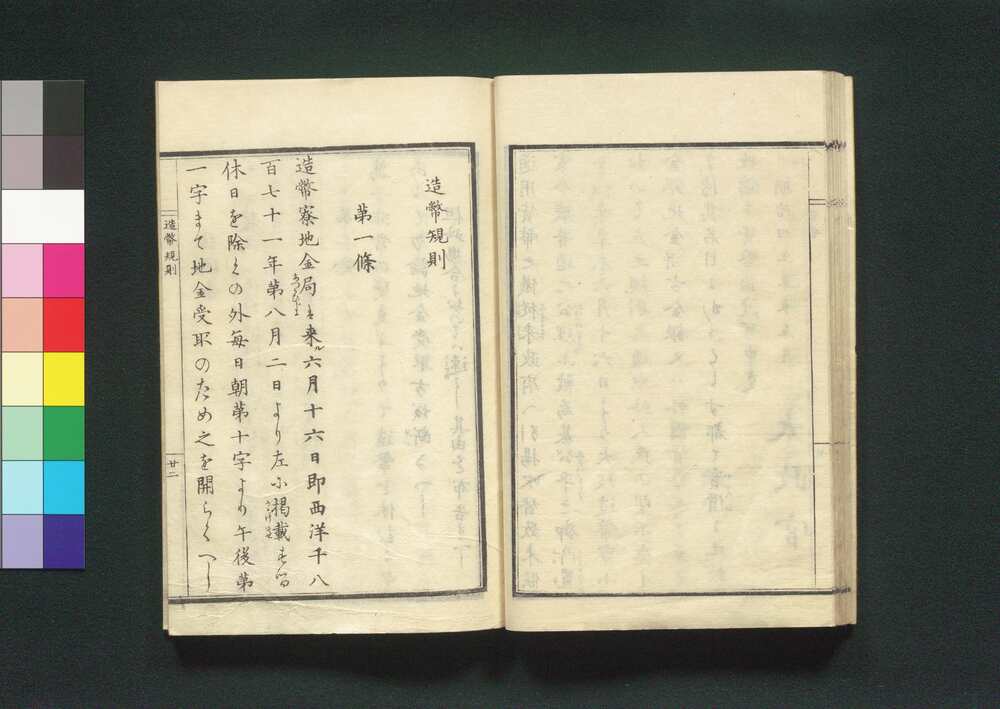 造幣規則
第一條
造幣寮地金局は来ル六月十六日即西洋千八
百七十一年第八月二日より左に掲載する
休日を除くの外毎日朝第十字より午後第
一字まて地金受取のため之を開らくへし
造幣規則
廿二